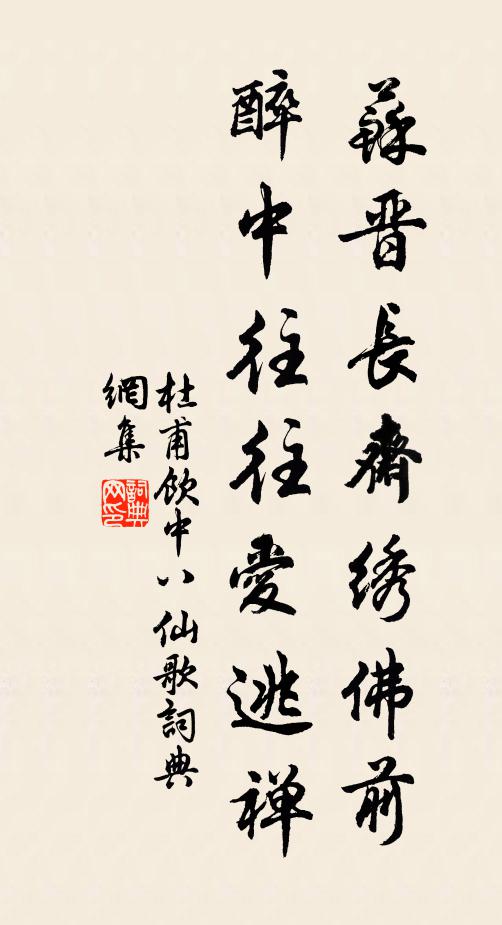 蘇晋長齋绣佛前
醉中往往愛逃禅
杜甫飲中八仙歌詞典
網集
詞典
网印